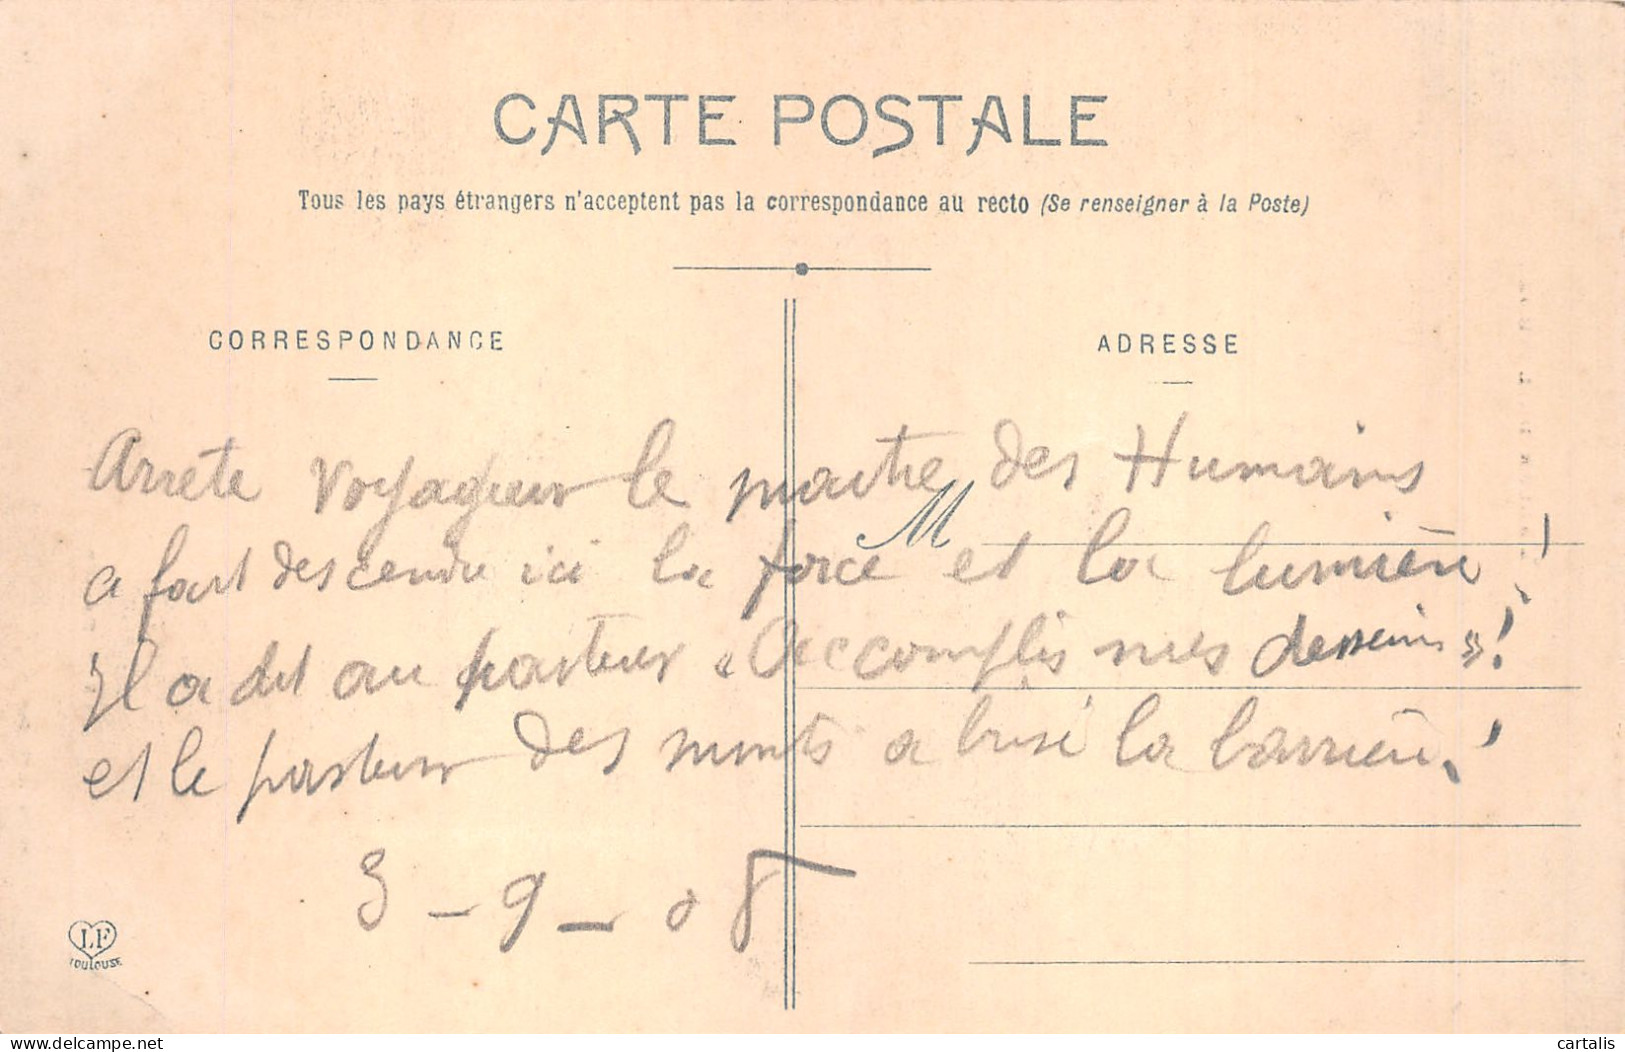 CARTE POSTALE
Tous les pays étrangers n'acceptent pas la correspondance au recto (Se renseigner à la Poste)
CORRESPONDANCE
ADRESSE
M
Arrete Voyageur le maitre des Humains
a fait descendre ici la force et la lumière!
Il a dit au pasteur « Accomplis mes desseins »!
et le pasteur des monts a brisé la barrière!
3-9-08
LF
TOULOUSE
delcampe.net
cartalis